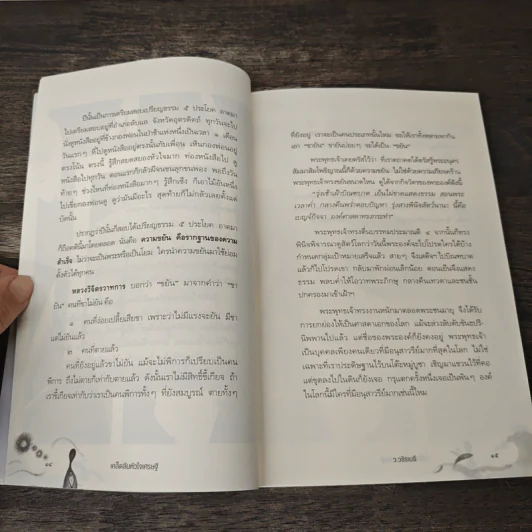 ปีนั้นเป็นการเตรียมสอบเปรียญธรรม ๕ ประโยค อาตมา
ไปเตรียมสอบอยู่ที่อำเภอลับแล จังหวัดอุตรดิตถ์ ทุกวันจะไป
นั่งดูหนังสืออยู่ที่ข้างกองฟอนในป่าช้าแห่งหนึ่งเป็นเวลา ๑ เดือน
วันแรกๆ ที่ไปดูหนังสืออยู่ตรงนั้นกับเพื่อน เห็นกองฟอนอยู่
ตรงโน้น ตรงนี้ รู้สึกสลดสยองหัวใจมาก ท่องหนังสือไป ดู
หนังสือไปทุกวัน ตอนแรกก็กลัวผีจนขนลุกขนพอง พอถึงวัน
ท้ายๆ ช่วงไหนที่ท่องหนังสือมากๆ รู้สึกเซ็ง ก็เอาไม้อันหนึ่ง
ไปเขี่ยกองฟอนดู ดูว่ามันมีอะไร สุดท้ายก็ไม่กลัวเลยตั้งแต่
บัดนั้น
ปรากฏว่าปีนั้นก็สอบได้เปรียญธรรม ๕ ประโยค อาตมา
ก็ถือคตินี้มาโดยตลอด นั่นคือ ความขยัน คือรากฐานของความ
สำเร็จ ไม่ว่าจะเป็นพระหรือเป็นโยม ใครนำความขยันมาใช้ย่อม
ตั้งตัวได้ทุกคน
หลวงวิจิตรวาทการ บอกว่า “ขยัน” มาจากคำว่า “ขา
ยัน” คนที่ขาไม่ยัน คือ
๑ คนที่ง่อยเปลี้ยเสียขา เพราะว่าไม่มีแรงจะยัน มีขา
แต่ไม่ยันแล้ว
๒ คนที่ตายแล้ว
คนที่ยังอยู่แล้วขาไม่ยัน แม้จะไม่พิการก็เปรียบเป็นคน
พิการ ถึงไม่ตายก็เท่ากับตายแล้ว ดังนั้นเราไม่มีสิทธิ์ขี้เกียจ ถ้า
เราขี้เกียจเท่ากับว่าเราเป็นคนพิการทั้งๆ ที่ยังสมบูรณ์ ตายทั้งๆ
๑๔
เคล็ดลับหัวใจเศรษฐี
ที่ยังอยู่ เราจะเป็นคนประเภทนั้นไหม ขอให้เราทั้งหลายพากัน
เอา “ขายัน” ขายันบ่อยๆ จะได้เป็น “ขยัน”
พระพุทธเจ้าเคยตรัสไว้ว่า ที่เราตถาคตได้ตรัสรู้พระอนุตร
สัมมาสัมโพธิญาณนี้ก็ด้วยความขยัน ไม่ใช่ด้วยความเกียจคร้าน
พระพุทธเจ้าทรงขยันขนาดไหน ดูได้จากกิจวัตรของพระองค์ดังนี้
“รุ่งเช้าเฝ้าบิณฑบาต เย็นโอวาทแสดงธรรม สอนพระ
เวลาค่ำ กลางคืนพร่ำตอบปัญหา รุ่งสางพินิจสัตว์นานา นี้คือ
เบญจ์กิจจา องค์ศาสดาทรงกระทำ”
พระพุทธเจ้าทรงตื่นบรรทมประมาณตี ๔ จากนั้นก็ทรง
พินิจพิจารณาดูสัตว์โลกว่าวันนี้พระองค์จะไปโปรดใครได้บ้าง
กำหนดกลุ่มเป้าหมายเสร็จแล้ว สายๆ จึงเสด็จไปบิณฑบาต
แล้วก็ไปโปรดเขา กลับมาพักผ่อนเล็กน้อย ตอนเย็นจึงแสดง
ธรรม พลบค่ำให้โอวาทพระภิกษุ กลางคืนเทวดาและชนชั้น
ปกครองมาเข้าเฝ้าฯ
พระพุทธเจ้าทรงงานหนักมาตลอดพระชนมายุ จึงได้รับ
การยกย่องให้เป็นศาสดาเอกของโลก แม้จะล่วงลับดับขันธปริ-
นิพพานไปแล้ว แต่ชื่อของพระองค์ก็ยังคงอยู่ พระพุทธเจ้า
เป็นบุคคลเพียงคนเดียวที่มีอนุสาวรีย์มากที่สุดในโลก ไม่ใช่
เฉพาะที่เราประดิษฐานไว้บนโต๊ะหมู่บูชา เชิญมาแขวนไว้ที่คอ
แต่ขุดลงไปในดินก็ยังเจอ กรุแตกครั้งหนึ่งเจอเป็นพันๆ องค์
ในโลกนี้มีใครที่มีอนุสาวรีย์มากเช่นนี้ไหม
ว.วชิรเมธี
๑๕